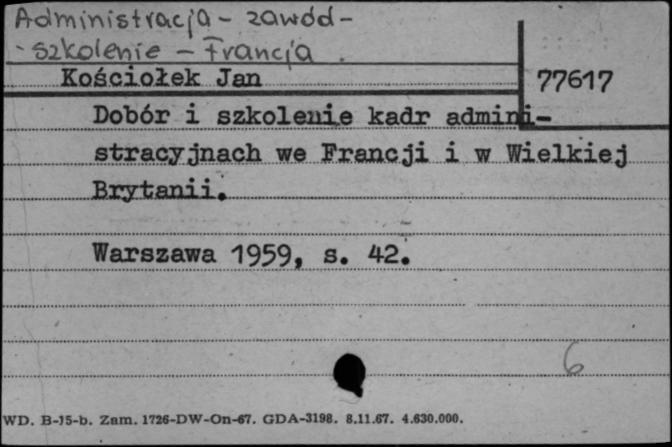 Administracja - zawód -
- szkolenie - Francja
Kościołek Jan
77617
Dobór i szkolenie kadr admini-
stracyjnach we Francji i w Wielkiej
Brytanii.
Warszawa 1959, s. 42.
6
WD. B-15-b. Zam. 1726-DW-On-67. GDA-3198. 8.11.67. 4.630.000.